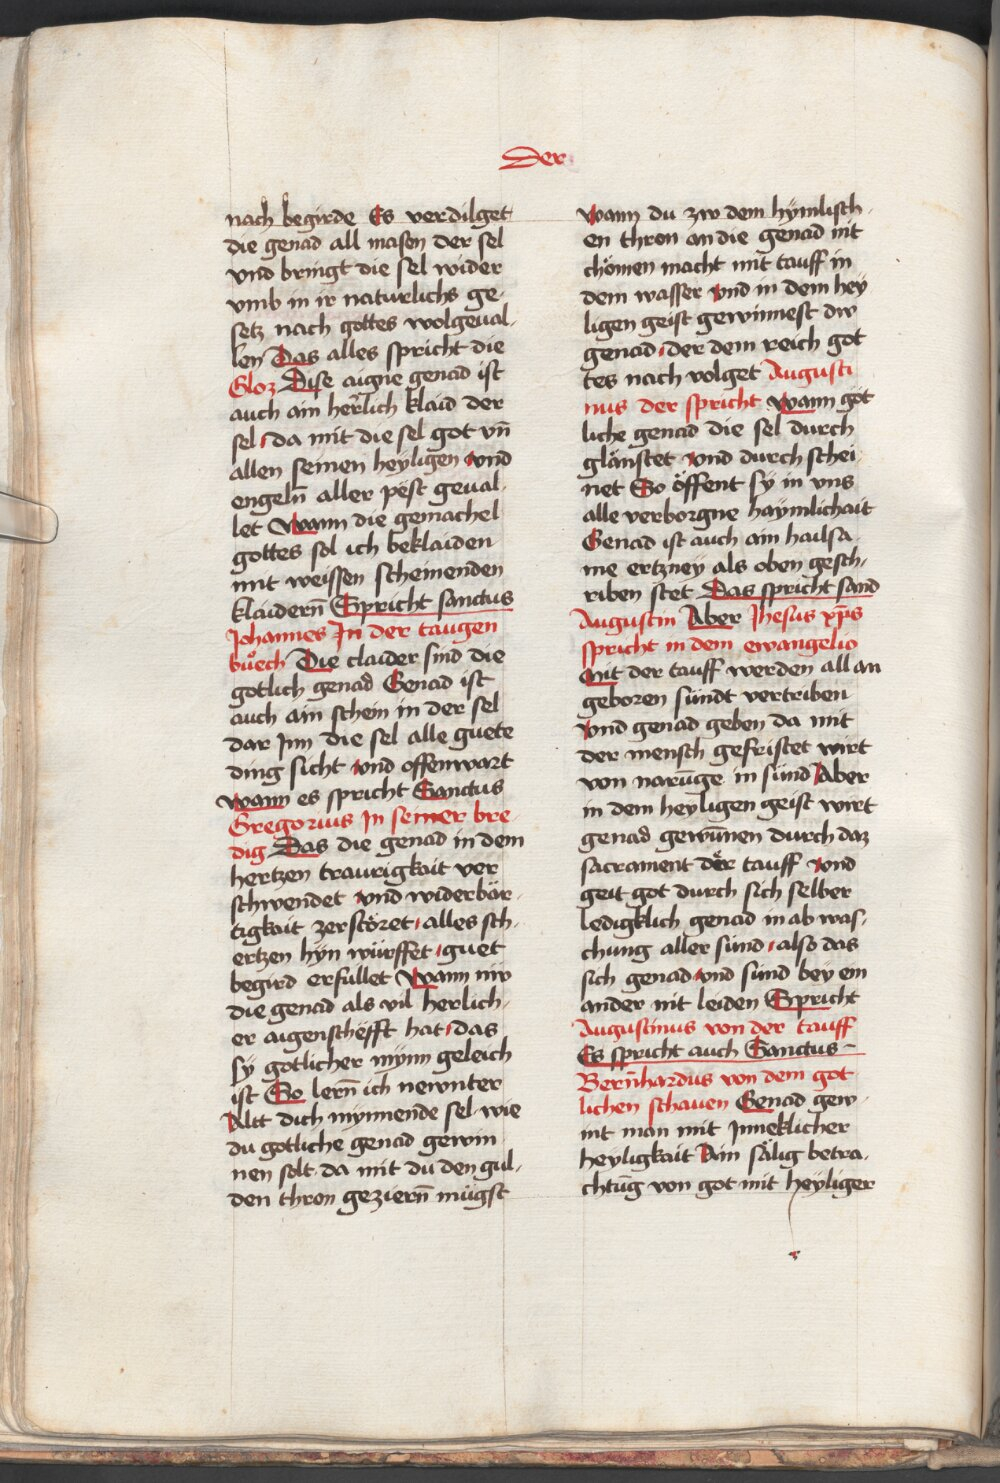 Der
nach begirde Es verdilget
die genad all mason der sel
vnd bringt die sel wider
vmb in ir naturlichs ge-
setz nach gottes wolgeual-
len Das alles spricht die
Gloz Dise aigne genad ist
auch ain herlich klaid der
sel da mit die sel got vn̄
allen seinen heyligen vnd
engeln̄ aller pëst geual-
let Wann die gemachel
gottes sol ich beklaiden
mit weissen scheinenden
klaidern̄ Spricht sanctus
Johannes In der taugen
bůech Die claider sind die
gotlich genad Genad ist
auch ain schein in der sel
dar Inn die sel alle guete
ding sicht vnd offenwart
wann es spricht Sanctus
Gregorius In seiner bre-
dig Das die genad in dem
hertzen traurigkait ver
schwendet vnd widerbär-
tigkait zerstöret alles sch-
ertzen hyn würffet guet
begird erfullet Wann niv
die genad als vil herlich-
er aigenschëfft hat das
sÿ gotlicher mÿnn geleich
ist So lern̄ ich newnter
Altt dich mÿnnende sel wie
du gotliche genad gewin
nen solt da mit du den gul-
den thron geziern̄ mügst
wann du zw dem hÿmlisch-
en thron an die genad nit
chömen macht mit tauff in
dem wasser vnd in dem hey
ligen geist gewinnest dw
genad der dem reich got
tes nach volget Augusti
nus der spricht wann göt
liche genad die sel durch
glänstet vnd durch schei-
net So öffent sÿ in vns
alle verborgne haÿmlichait
Genad ist auch ain hailsa-
me ertzneÿ als oben gesch-
riben stet Das spricht sand
Augustin Aber Jhesus xp̄s
spricht in dem ewangelio
Mit der tauff werden all an
geboren sündt vertriben
vnd genad geben da mit
der mensch gefristet wirt
von narūge in sünd Aber
in dem heyligen geist wirt
genad gewūnen durch daz
sacrament der tauff vnd
geit got durch sich selber
ledigklich genad in ab was-
chung aller sünd also das
sich genad vnd sünd bey ein
ander nit leiden Spricht
Augustinus von der tauff
Es spricht auch Sanctus
Bern̄hardus von dem got
lichen schauen Genad gew-
int man mit Inneklicher
heyligkait Ain sälig betra-
chtūg von got mit heÿliger